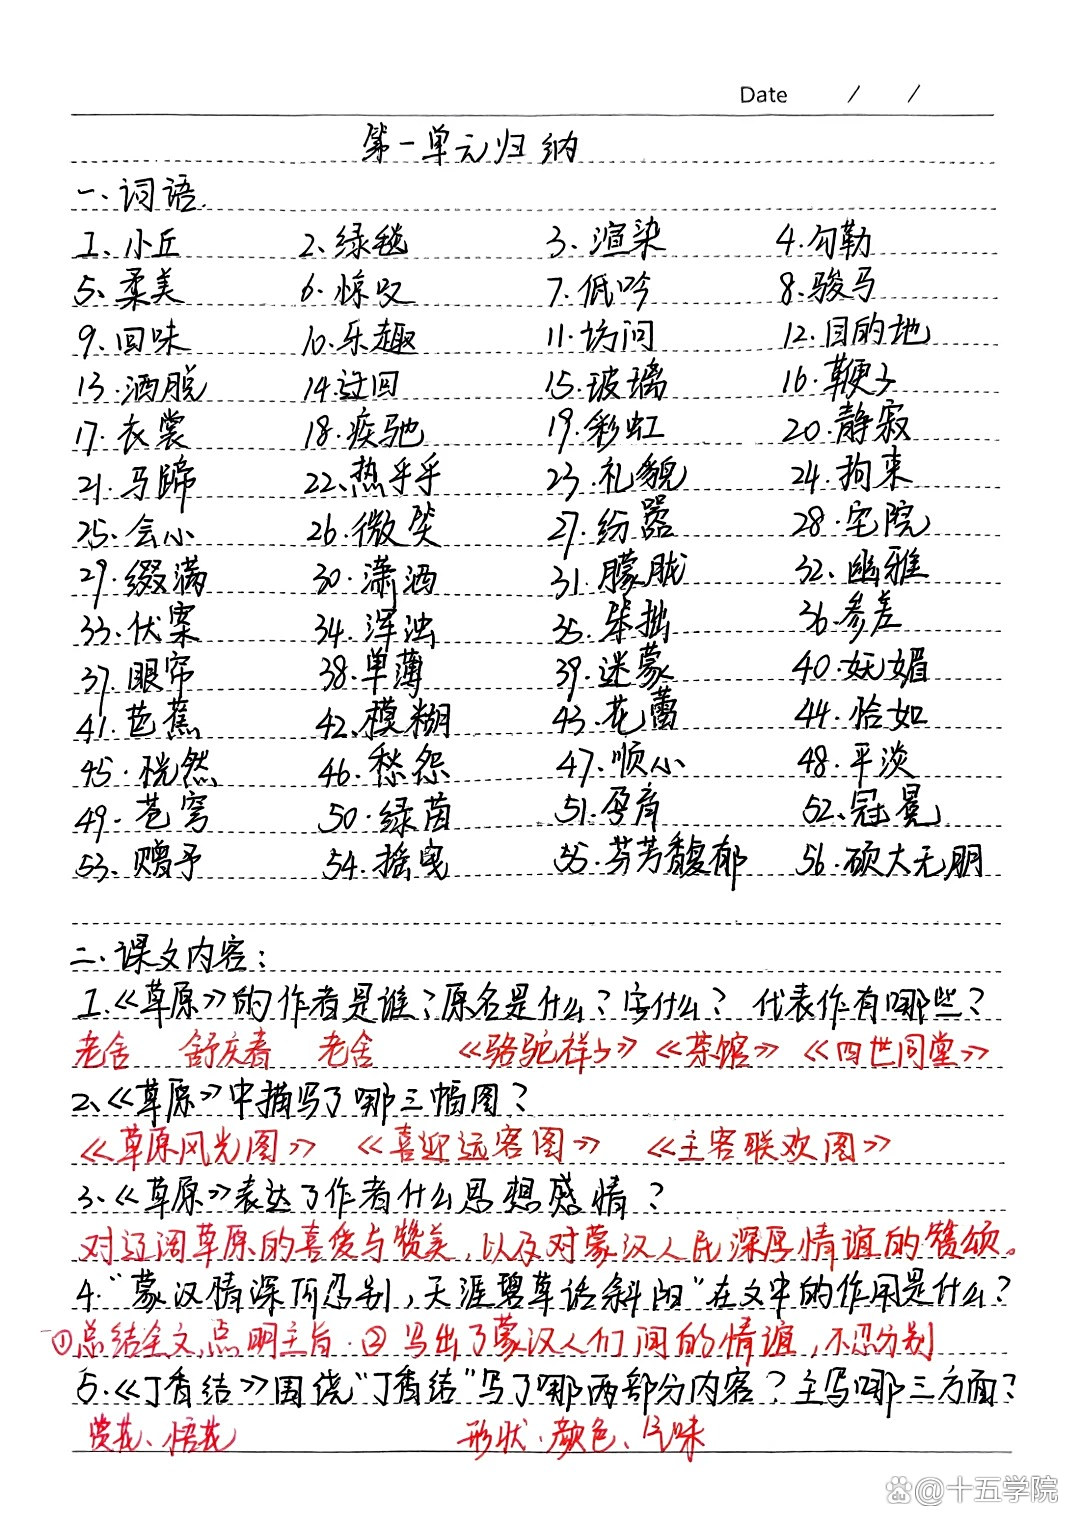 Date / /
第一单元归纳
一、词语.
1、小丘 2、绿毯 3、渲染 4.勾勒
5、柔美 6.惊叹 7.低吟 8.骏马
9.回味 10.乐趣 11.访问 12.目的地
13.洒脱 14.迂回 15.玻璃 16.鞭子
17.衣裳 18.疾驰 19.彩虹 20.静寂
21.马蹄 22、热乎乎 23.礼貌 24.拘束
25.会心 26.微笑 27.纷嚣 28.宅院
29.缀满 30.潇洒 31.朦胧 32.幽雅
33.伏案 34.浑浊 35.笨拙 36.参差
37.眼帘 38.单薄 39.迷蒙 40.妩媚
41.芭蕉 42、模糊 43.花蕾 44.恰如
45.恍然 46.愁怨 47.顺心 48.平淡
49.苍穹 50.绿茵 51.孕育 52、冠冕
53.赠予 54.摇曳 55.芬芳馥郁 56.硕大无朋
二.课文内容:
1.《草原》的作者是谁?原名是什么?字什么? 代表作有哪些?
老舍 舒庆春 老舍 《骆驼祥子》《茶馆》《四世同堂》
2、《草原》中描写了哪三幅图?
《草原风光图》 《喜迎远客图》 《主客联欢图》
3.《草原》表达了作者什么思想感情?
对辽阔草原的喜爱与赞美,以及对蒙汉人民深厚情谊的赞颂。
4."蒙汉情深何忍别,天涯碧草话斜阳"在文中的作用是什么?
①总结全文,点明主旨.②写出了蒙汉人们间的情谊,不忍分别
5.《丁香结》围绕"丁香结"写了哪两部分内容?主写哪三方面?
赏花、悟花 形状.颜色、气味
du @十五学院